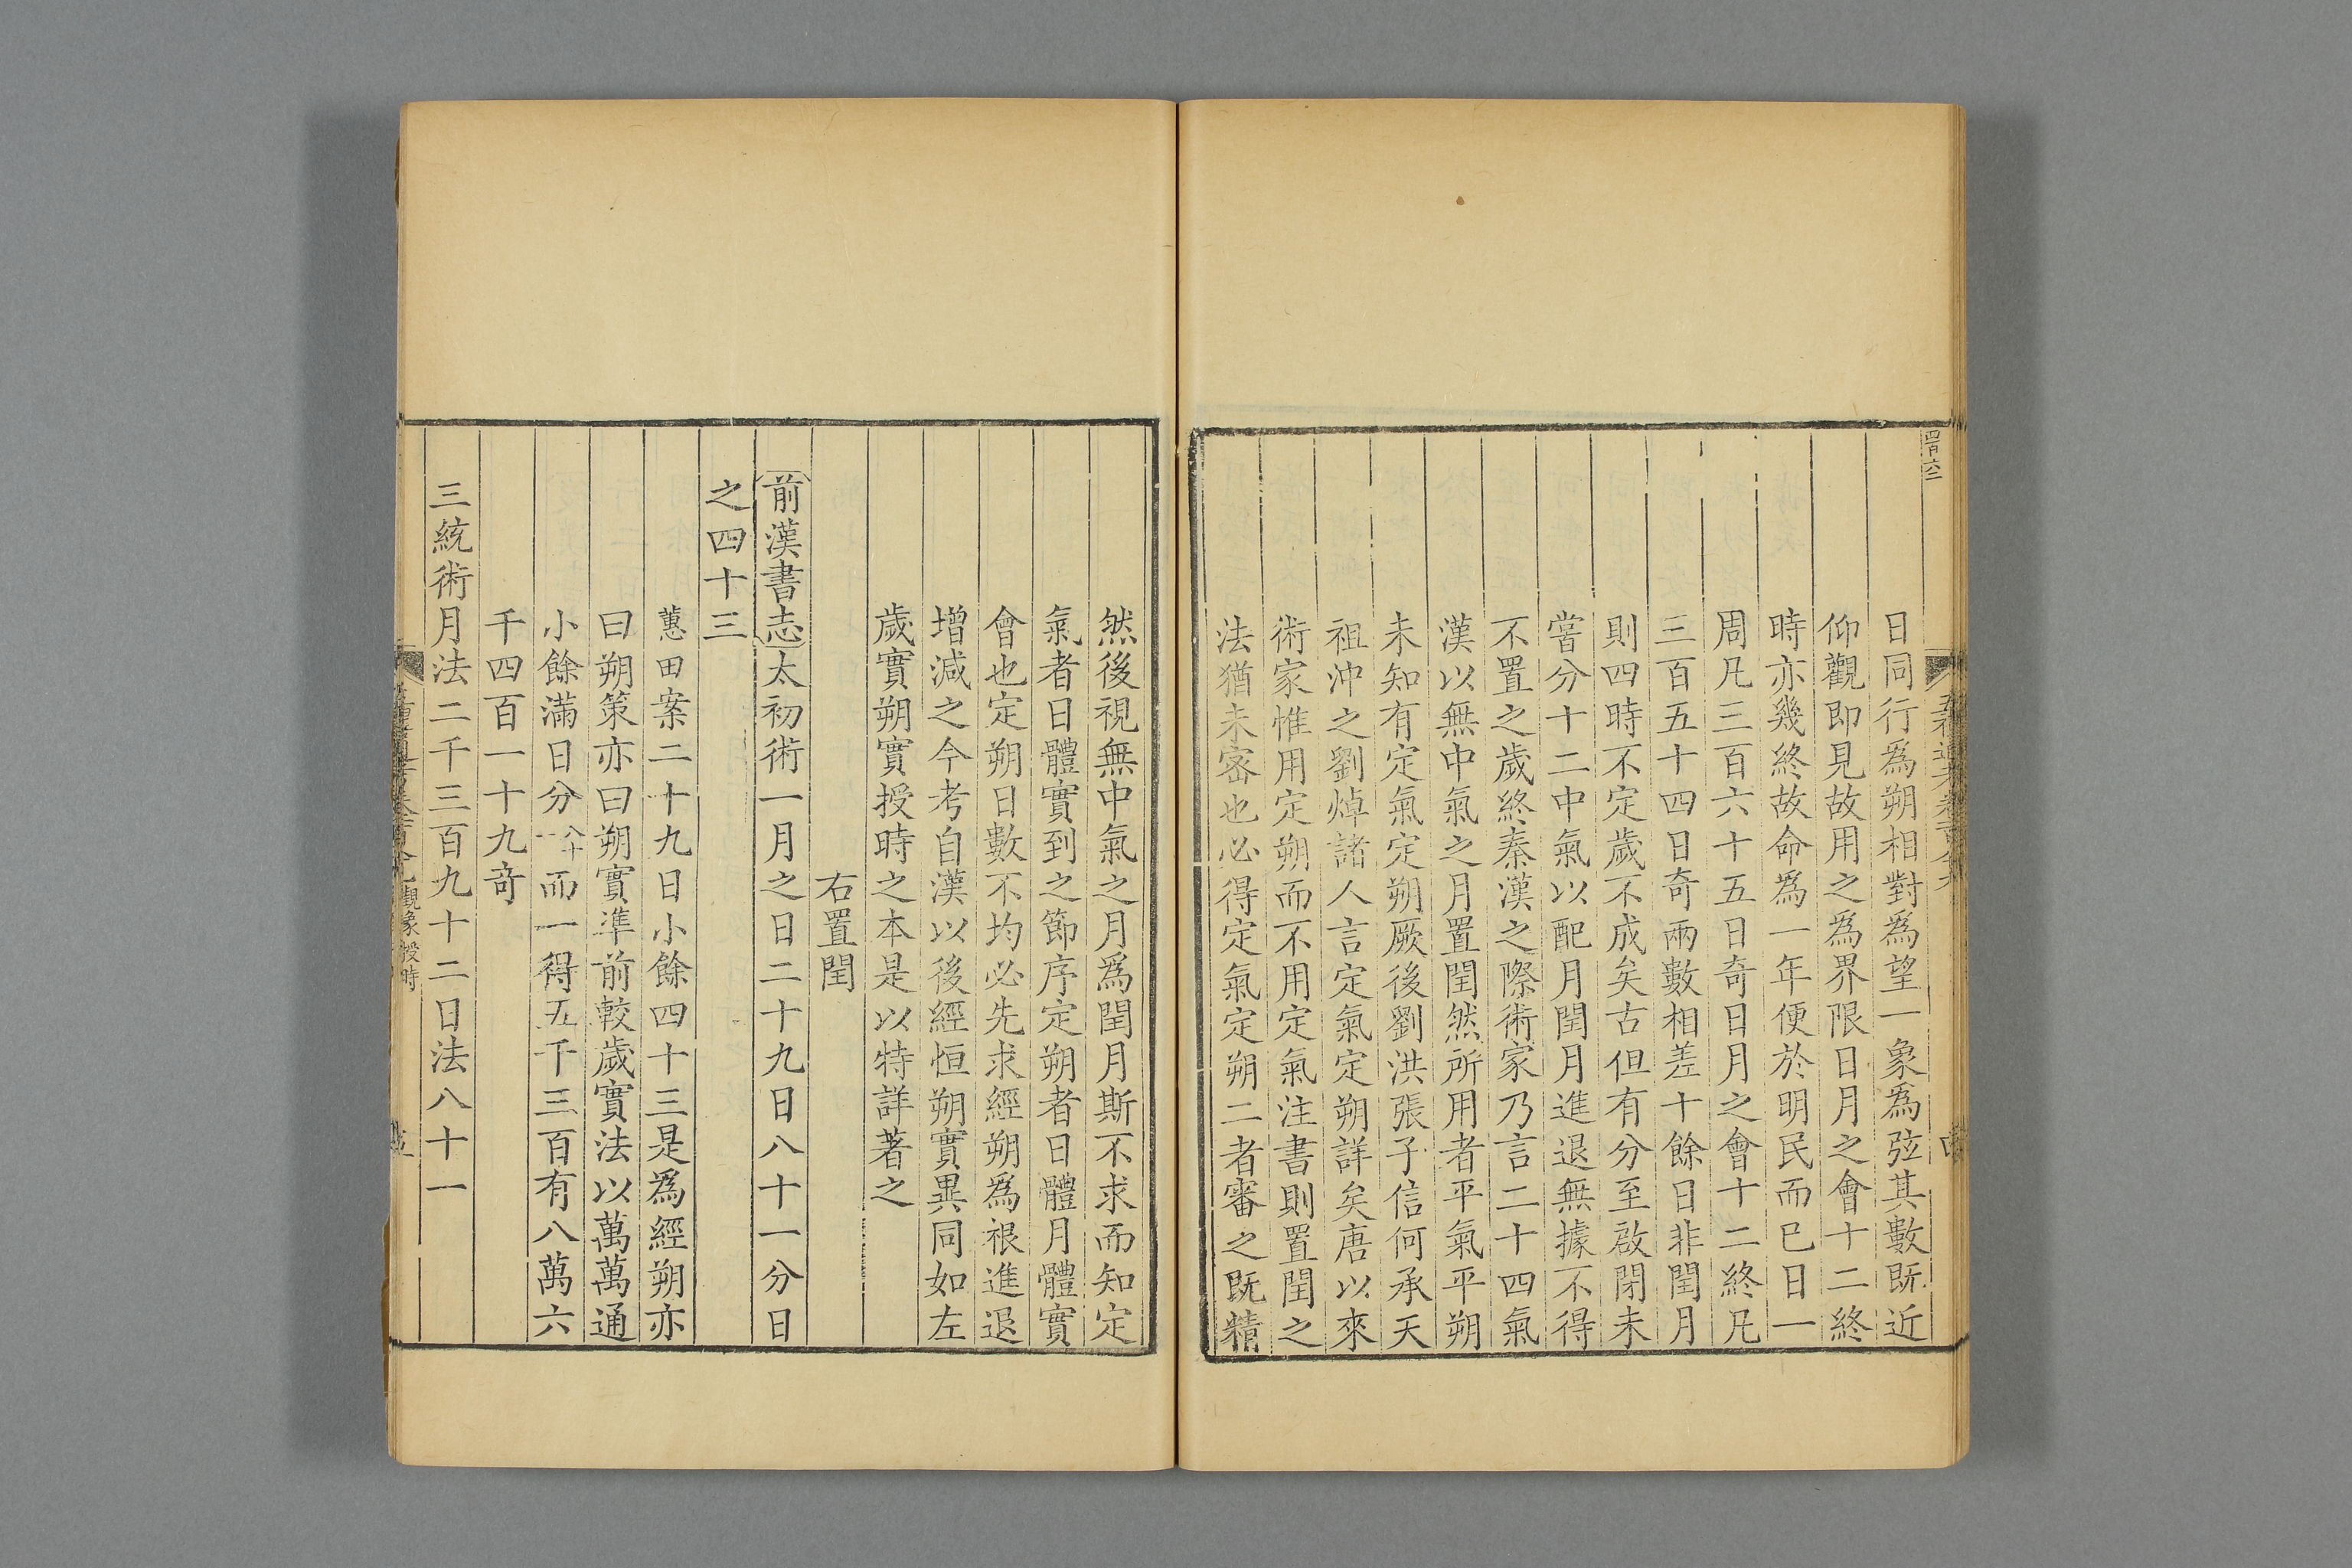 四百六二
日同行爲朔相對爲望一象爲弦其數旣近
仰觀即見故用之爲界限日月之會十二終
時亦幾終故命爲一年便於明民而已日一
周凡三百六十五日奇日月之會十二終凡
三百五十四日奇兩數相差十餘日非閏月
則四時不定歲不成矣古但有分至啟閉未
嘗分十二中氣以配月閏月進退無據不得
不置之歲終秦漢之際術家乃言二十四氣
漢以無中氣之月置閏然所用者平氣平朔
未知有定氣定朔厥後劉洪張子信何承天
祖沖之劉焯諸人言定氣定朔詳矣唐以來
術家惟用定朔而不用定氣注書則置閏之
法猶未密也必得定氣定朔二者審之旣精
然後視無中氣之月爲閏月斯不求而知定
氣者日體實到之節序定朔者日體月體實
會也定朔日數不均必先求經朔爲根進退
增減之今考自漢以後經恒朔實異同如左
歲實朔實授時之本是以特詳著之
右置閏
前漢書志太初術一月之日二十九日八十一分日
之四十三
蕙田案二十九日小餘四十三是爲經朔亦
曰朔策亦曰朔實準前較歲實法以萬萬通
小餘滿日分八十一而一得五千三百有八萬六
千四百一十九奇
三統術月法二千三百九十二日法八十一
觀象授時